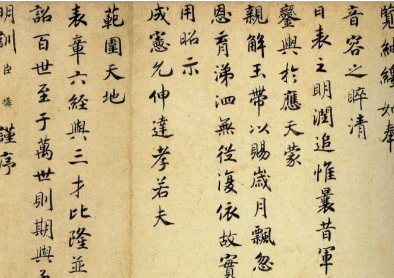 覽紬繹如奉
音容之睟清
日表之明潤追惟曩昔軍
鑾輿於應天蒙
親解玉帶以賜歲月飄忽
恩育涕泗無從復依故實
用昭示
成憲允伸達孝若夫
範圍天地
表章六經與三才比隆並
詔百世至于萬世則期與
明訓臣構謹序